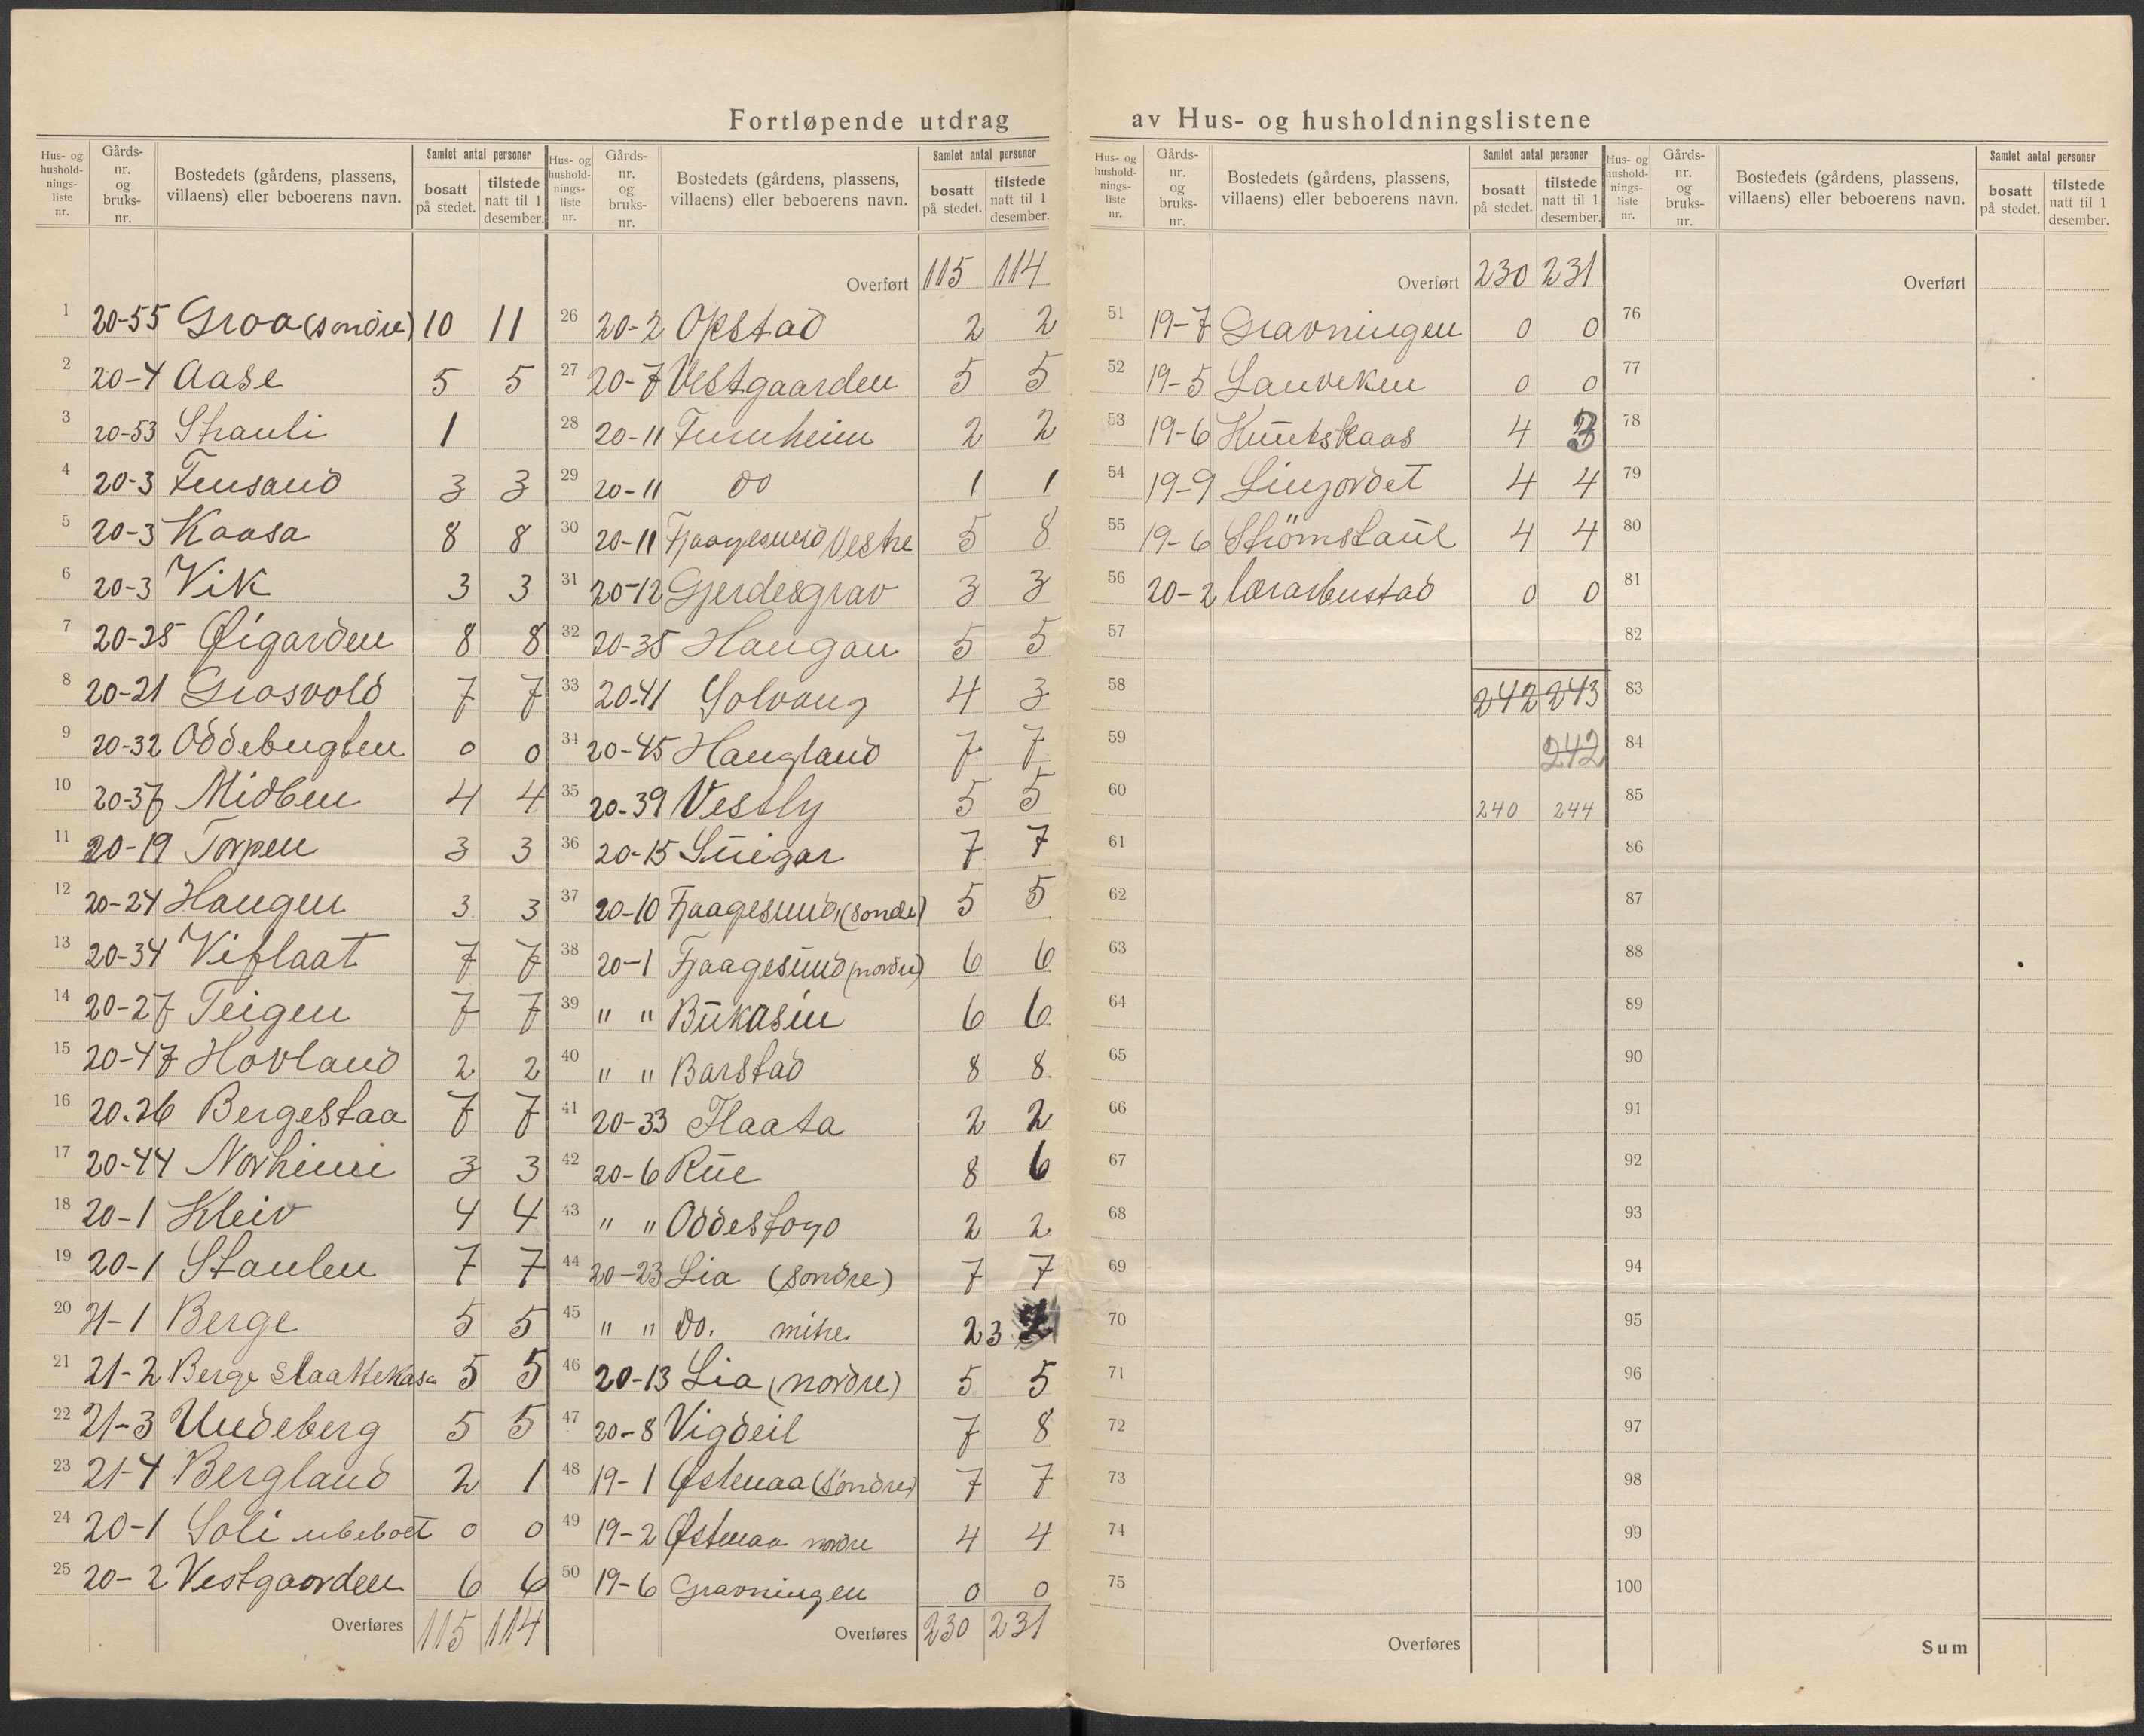 Fortløpende utdrag av Hus- og husholdningslistene
Hus- og hushold-nings-liste nr. Gårds-nr. og bruks-nr. Bostedets (gårdens, plassens, villaens) eller beboerens navn. Samlet antal personer bosatt på stedet. tilstede natt til 1 desember.
1 20-55 Groa (søndre) 10 11
2 20-4 Aase 5 5
3 20-53 Strauli 1
4 20-3 Fensand 3 3
5 20-3 Kaasa 8 8
6 20-3 Vik 3 3
7 20-25 Øigarden 8 8
8 20-21 Grosvold 7 7
9 20-32 Oddebugten 0 0
10 20-37 Midbøen 4 4
11 20-19 Torpen 3 3
12 20-24 Haugen 3 3
13 20-34 Viflaat 7 7
14 20-27 Teigen 7 7
15 20-47 Hovland 2 2
16 20.26 Bergestaa 7 7
17 20-44 Norheim 3 3
18 20-1 Kleiv 4 4
19 20-1 Staulen 7 7
20 21-1 Berge 5 5
21 21-2 Berge Slaattekasa 5 5
22 21-3 Undeberg 5 5
23 21-4 Bergland 2 1
24 20-1 Soli ubeboet 0 0
25 20-2 Vestgaarden 6 6
Overføres 115 114
Hus- og hushold-nings-liste nr. Gårds-nr. og bruks-nr. Bostedets (gårdens, plassens, villaens) eller beboerens navn. Samlet antal personer bosatt på stedet. tilstede natt til 1 desember.
Overført 115 114
26 20-2 Opstad 2 2
27 20-7 Vestgaarden 5 5
28 20-11 Furuheim 2 2
29 20-11 do 1 1
30 20-11 Fjaagesund Vestre 5 8
31 20-12 Gjerdesgrav 3 3
32 20-35 Haugan 5 5
33 20-41 Solvang 4 3
34 20-45 Haugland 7 7
35 20-39 Vestly 5 5
36 20-15 Suigar 7 7
37 20-10 Fjaagesund (sondre) 5 5
38 20-1 Fjaagesund (nordre) 6 6
39 " " Bukasin 6 6
40 " " Barstad 8 8
41 20-33 Flaata 2 2
42 20-6 Rue 8 6
43 " " Oddestogo 2 2
44 20-23 Lia (sondre) 7 7
45 " " do. mitre 2 3
46 20-13 Lia (nordre) 5 5
47 20-8 Vigdeil 7 8
48 19-1 Østenaa (Søndre) 7 7
49 19-2 Østenaa nordre 4 4
50 19-6 Gravningen 0 0
Overføres 230 231
Hus- og hushold-nings-liste nr. Gårds-nr. og bruks-nr. Bostedets (gårdens, plassens, villaens) eller beboerens navn. Samlet antal personer bosatt på stedet. tilstede natt til 1 desember.
Overført 230 231
51 19-7 Gravningen 0 0
52 19-5 Lauveken 0 0
53 19-6 Knutskaas 4 3
54 19-9 Linjordet 4 4
55 19-6 Strömstaul 4 4
56 20-2 Lærarbustad 0 0
57
58 242 243
59 242
60 240 244
61
62
63
64
65
66
67
68
69
70
71
72
73
74
75
Overføres
Hus- og hushold-nings-liste nr. Gårds-nr. og bruks-nr. Bostedets (gårdens, plassens, villaens) eller beboerens navn. Samlet antal personer bosatt på stedet. tilstede natt til 1 desember.
Overført
76
77
78
79
80
81
82
83
84
85
86
87
88
89
90
91
92
93
94
95
96
97
98
99
100
Sum